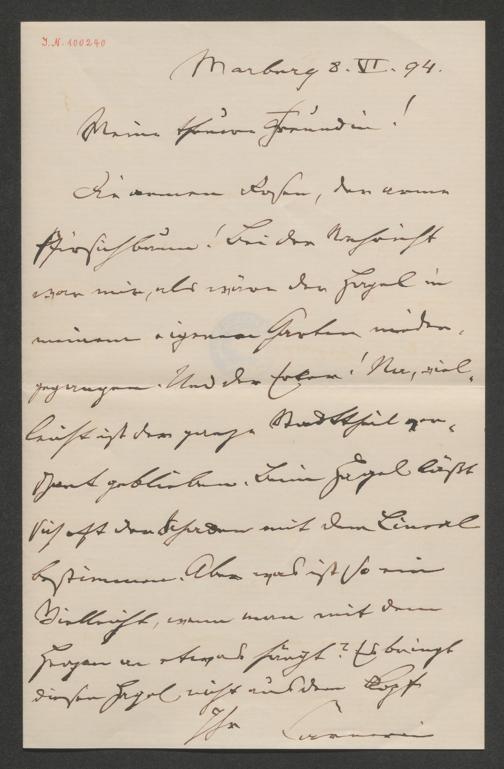 J.N. 100240
Marburg 8. VI. 94.
Meine theure Freundin!
Die armen Rosen, der arme
Pfirsichbaum! Bei der Nachricht
war mir, als wäre der Hagel in
meinem eigenen Garten nieder-
gegangen. Und der Erker! Nu, viel-
leicht ist der ganze Stadttheil ver-
schont geblieben. Beim Hagel läßt
sich oft der Schaden mit dem Lineal
bestimmen. Aber was ist so ein
Vielleicht, wenn man mit dem
Herzen an etwas hängt? Es bringt
diesen Hagel nicht aus dem Kopf
Ihr Carneri